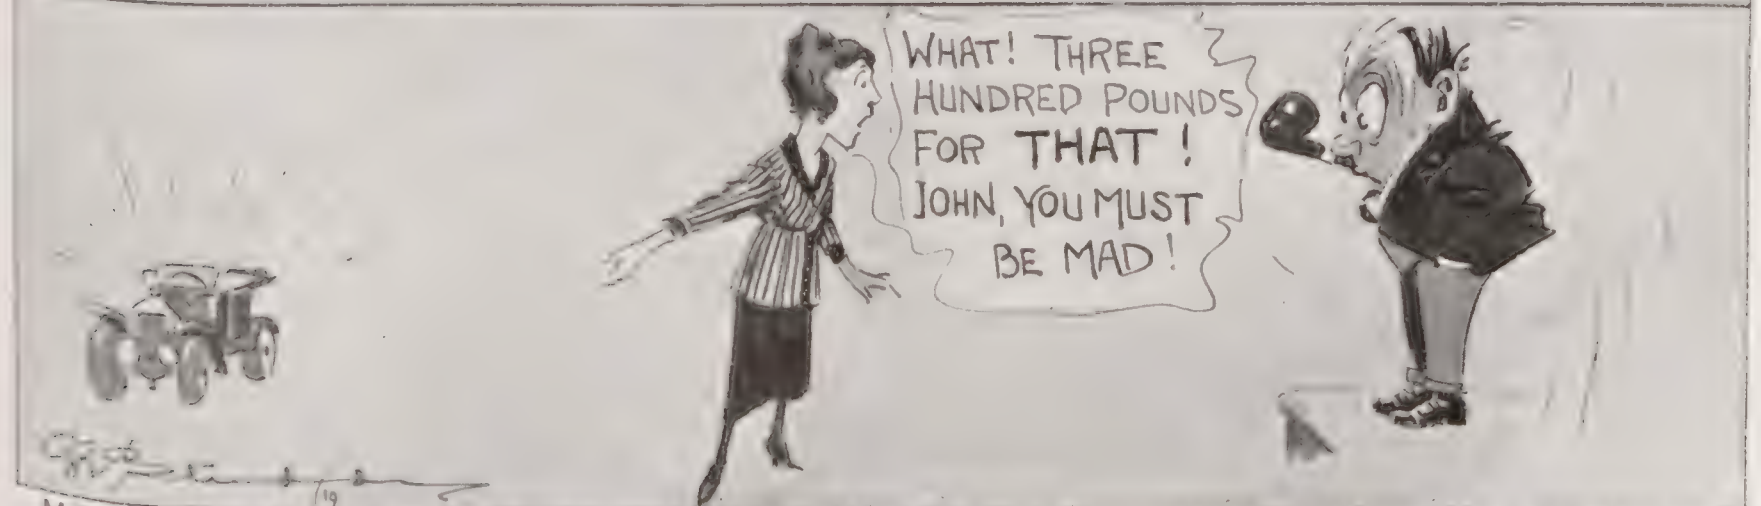 WHAT! THREE
HUNDRED POUNDS
FOR THAT!
JOHN, YOU MUST
BE MAD!
19